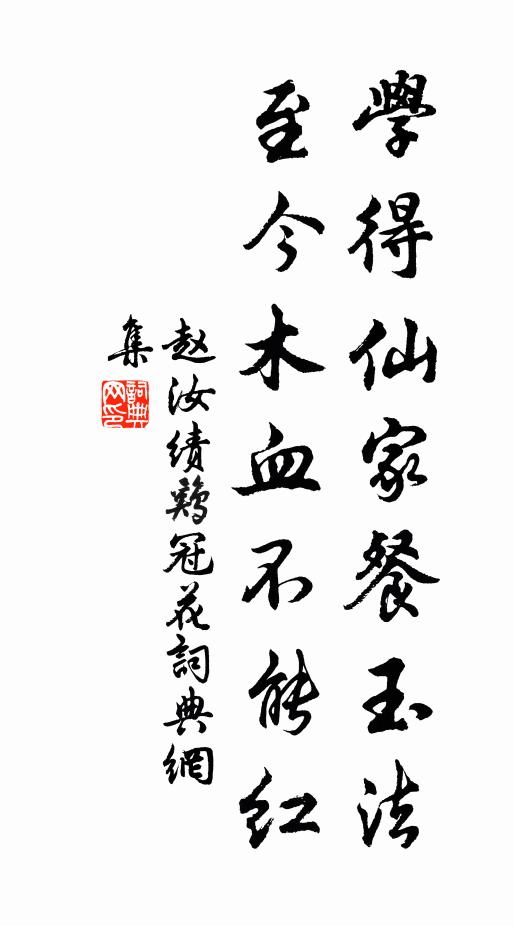 學得仙家餐玉法
至今木血不能红
赵汝绩鷄冠花詞典網
集
詞典网印